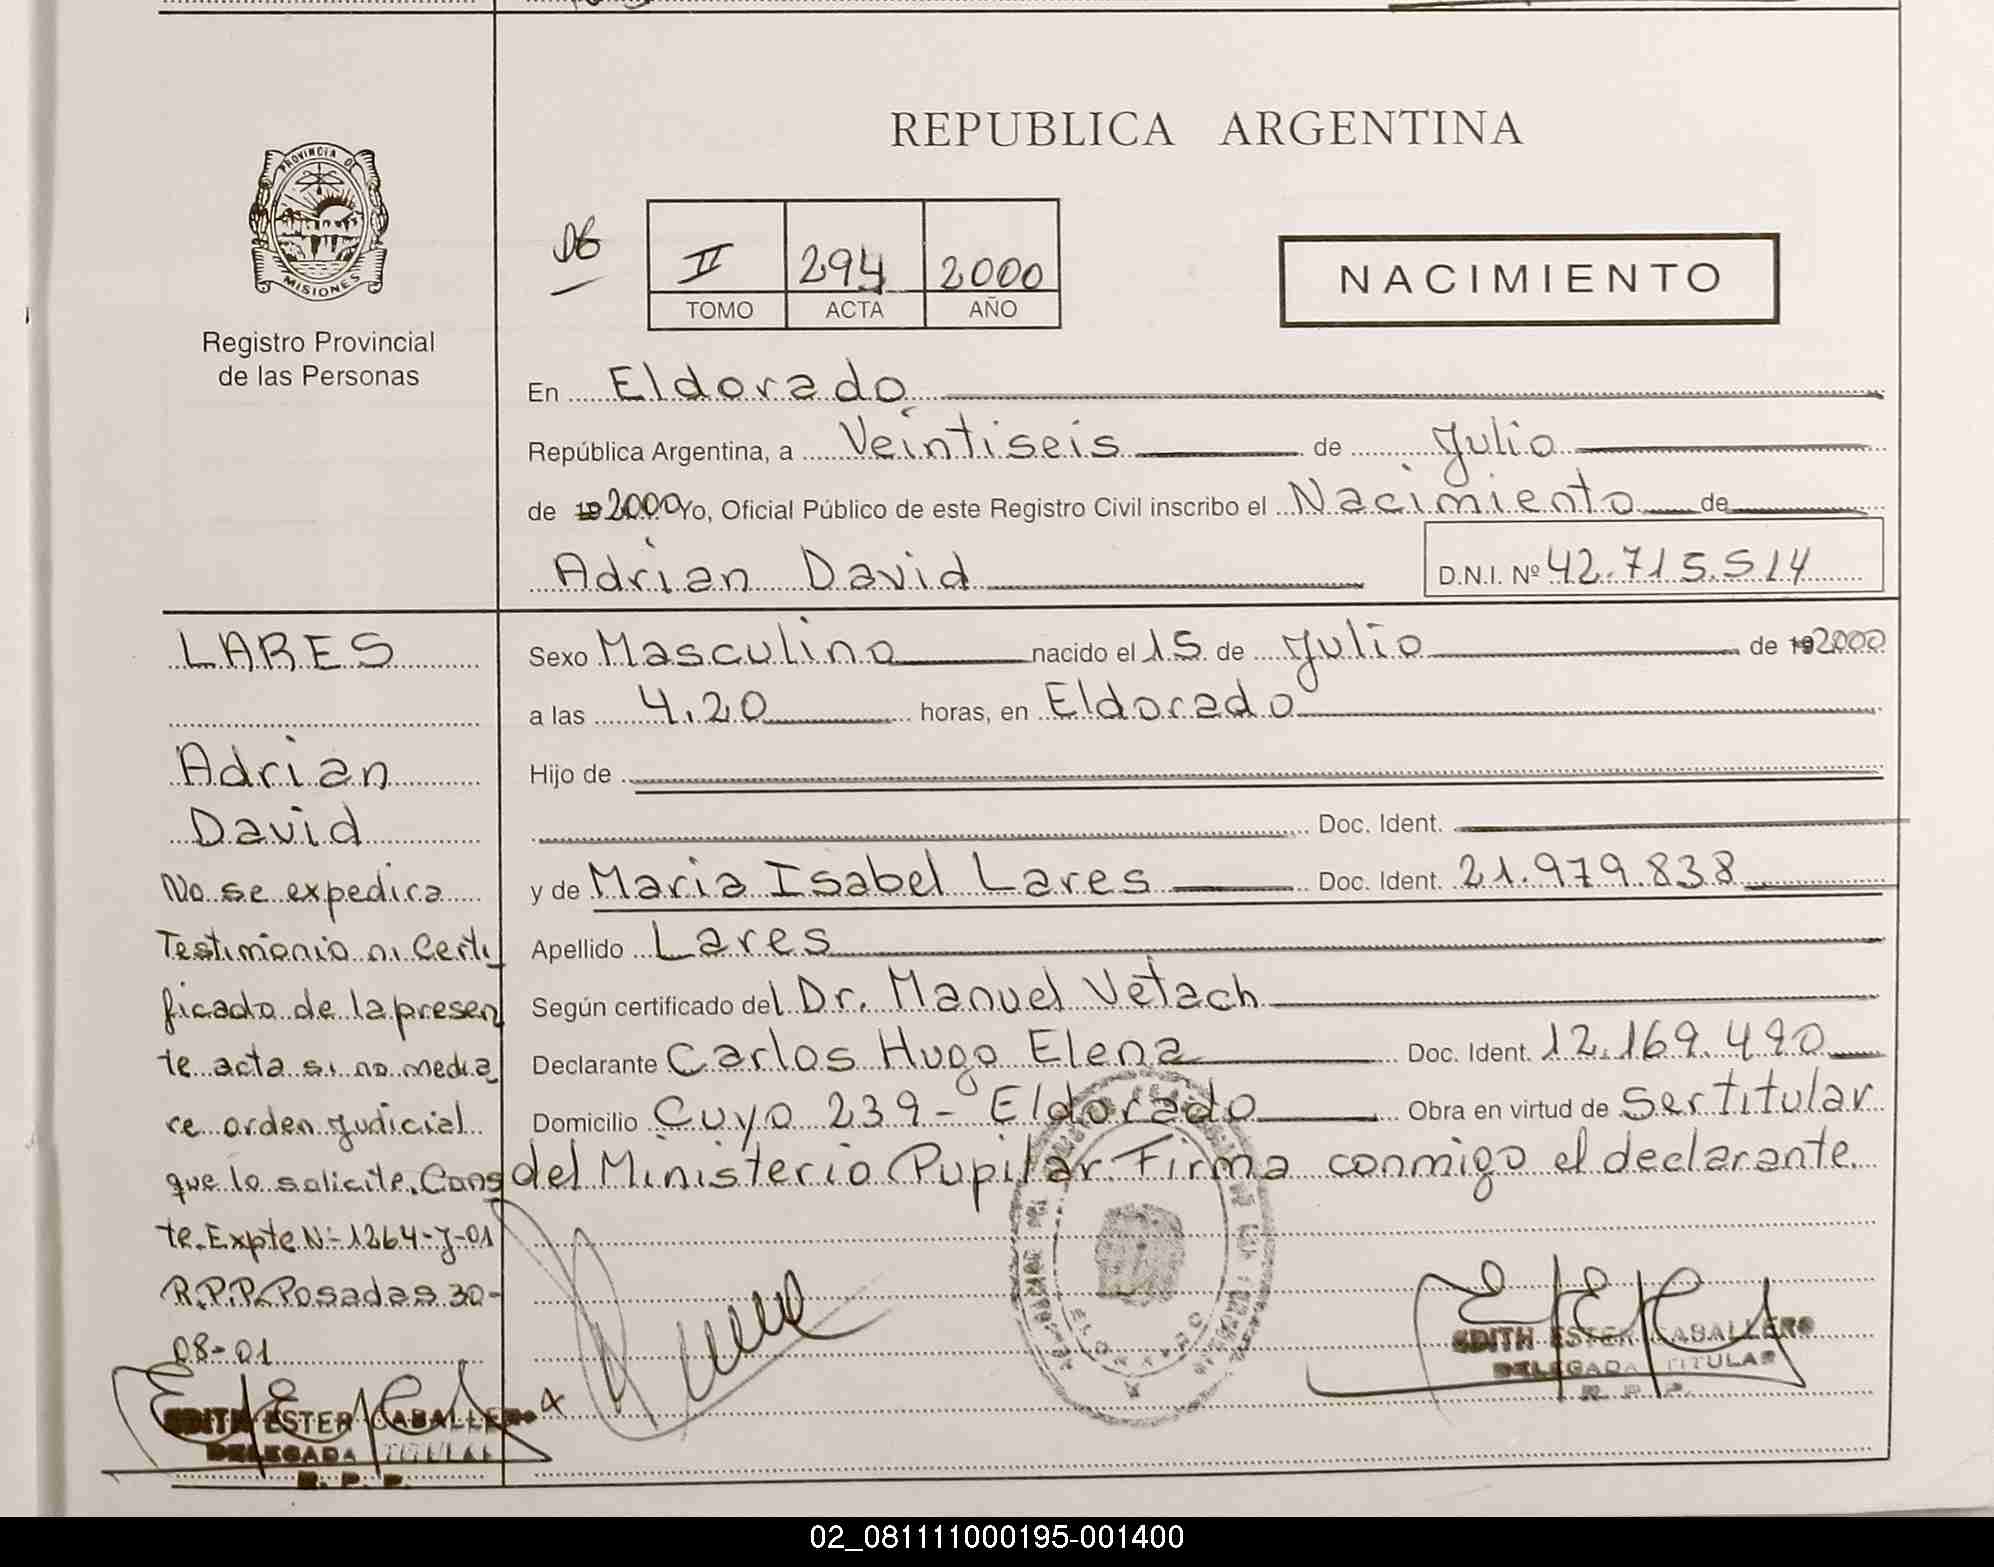 REPUBLICA ARGENTINA
PROVINCIA DE
MISIONES
Registro Provincial
de las Personas
06
II 294 2000
TOMO ACTA AÑO
NACIMIENTO
En Eldorado
República Argentina, a Veintiseis de Julio
de 19 2000 Yo, Oficial Público de este Registro Civil inscribo el Nacimiento de
Adrian David D.N.I. Nº 42.715.514
Sexo Masculino nacido el 15 de Julio de 19 2000
a las 4.20 horas, en Eldorado
Hijo de
Doc. Ident.
y de Maria Isabel Lares Doc. Ident. 21.979.838
Apellido Lares
Según certificado del Dr. Manuel Vetach
Declarante Carlos Hugo Elena Doc. Ident. 12.169.490
Domicilio Cuyo 239 - Eldorado Obra en virtud de Ser titular
del Ministerio Pupilar. Firma conmigo el declarante.
LARES
Adrian
David
No se expedira
Testimonio ni Certi
ficado de la presen
te acta si no media
re orden judicial
que lo solicite. Cons
te. Expte N- 1264-J-01
R.P.P. Posadas 30-
08-01
EDITH ESTER CABALLERO
DELEGADA TITULAR
R. P. P.
ELDORADO
EDITH ESTER CABALLERO
DELEGADA TITULAR
R. P. P.
02_081111000195-001400